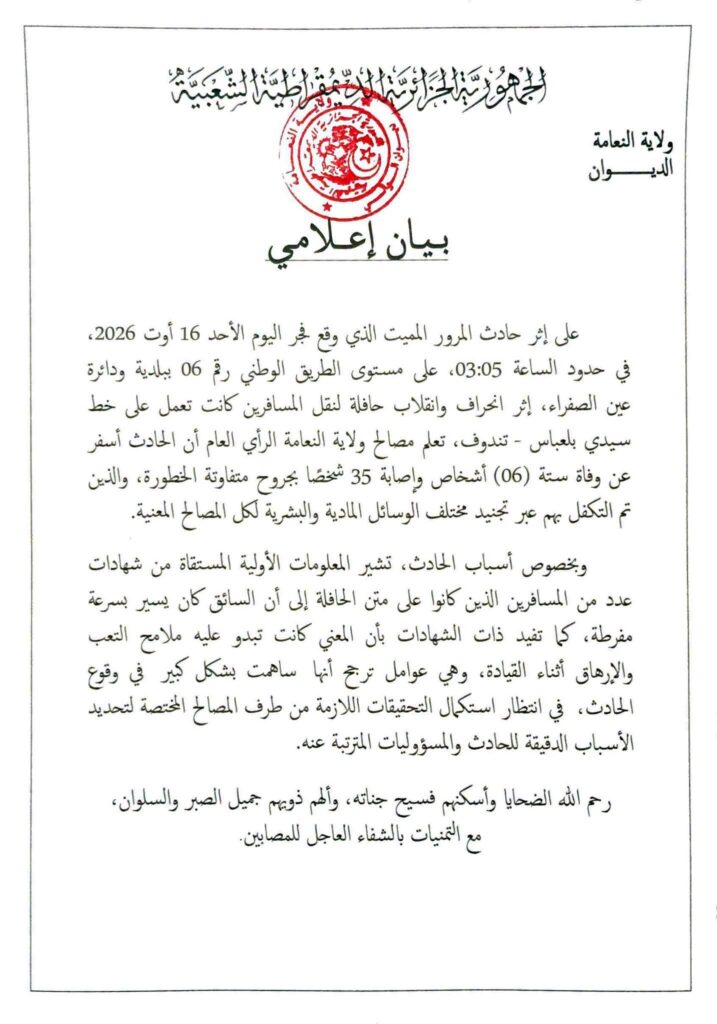 الجمهورية الجزائرية الديمقراطية الشعبية
ولاية النعامة
الديـــــــوان
بيـان إعـلامي
على إثر حادث المرور المميت الذي وقع فجر اليوم الأحد 16 أوت 2026،
في حدود الساعة 03:05، على مستوى الطريق الوطني رقم 06 ببلدية ودائرة
عين الصفراء، إثر انحراف وانقلاب حافلة لنقل المسافرين كانت تعمل على خط
سيدي بلعباس - تندوف، تعلم مصالح ولاية النعامة الرأي العام أن الحادث أسفر
عن وفاة ستة (06) أشخاص وإصابة 35 شخصًا بجروح متفاوتة الخطورة، والذين
تم التكفل بهم عبر تجنيد مختلف الوسائل المادية والبشرية لكل المصالح المعنية.
وبخصوص أسباب الحادث، تشير المعلومات الأولية المستقاة من شهادات
عدد من المسافرين الذين كانوا على متن الحافلة إلى أن السائق كان يسير بسرعة
مفرطة، كما تفيد ذات الشهادات بأن المعني كانت تبدو عليه ملامح التعب
والإرهاق أثناء القيادة، وهي عوامل ترجح أنها ساهمت بشكل كبير في وقوع
الحادث، في انتظار استكمال التحقيقات اللازمة من طرف المصالح المختصة لتحديد
الأسباب الدقيقة للحادث والمسؤوليات المترتبة عنه.
رحم الله الضحايا وأسكنهم فسيح جناته، وألهم ذويهم جميل الصبر والسلوان،
مع التمنيات بالشفاء العاجل للمصابين.